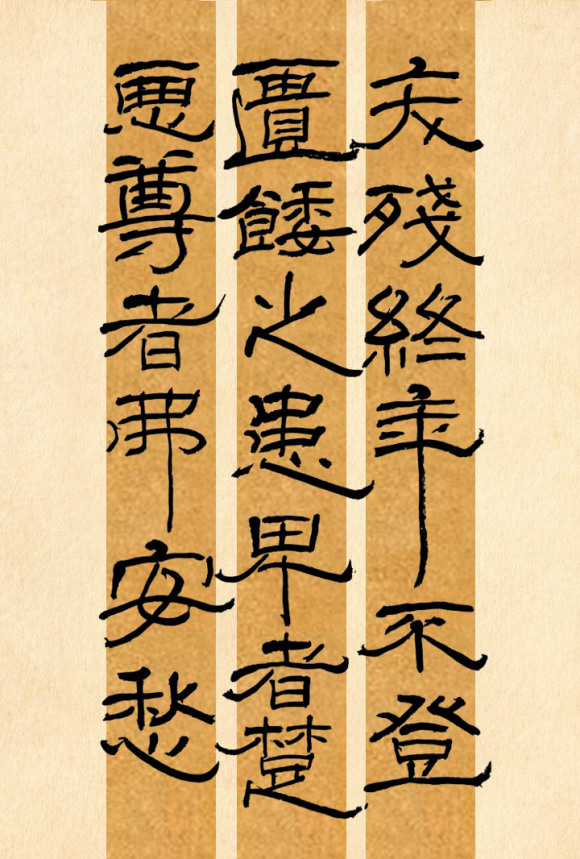 殘終年不登
匱餧之患卑者楚
惡尊者弗安愁